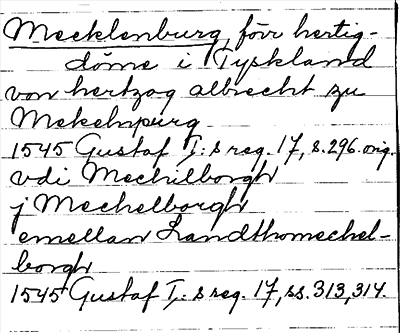 Mecklenburg, förr hertig-
döme i Tyskland
von hertzog Albrecht zu
Mekelnpurg
1545 Gustaf I:s reg. 17, s. 296. orig.
vdi Mechilborgh
j Mechelborgh
emellan Landthomechel-
borgh
1545 Gustaf I:s reg. 17, ss. 313, 314.